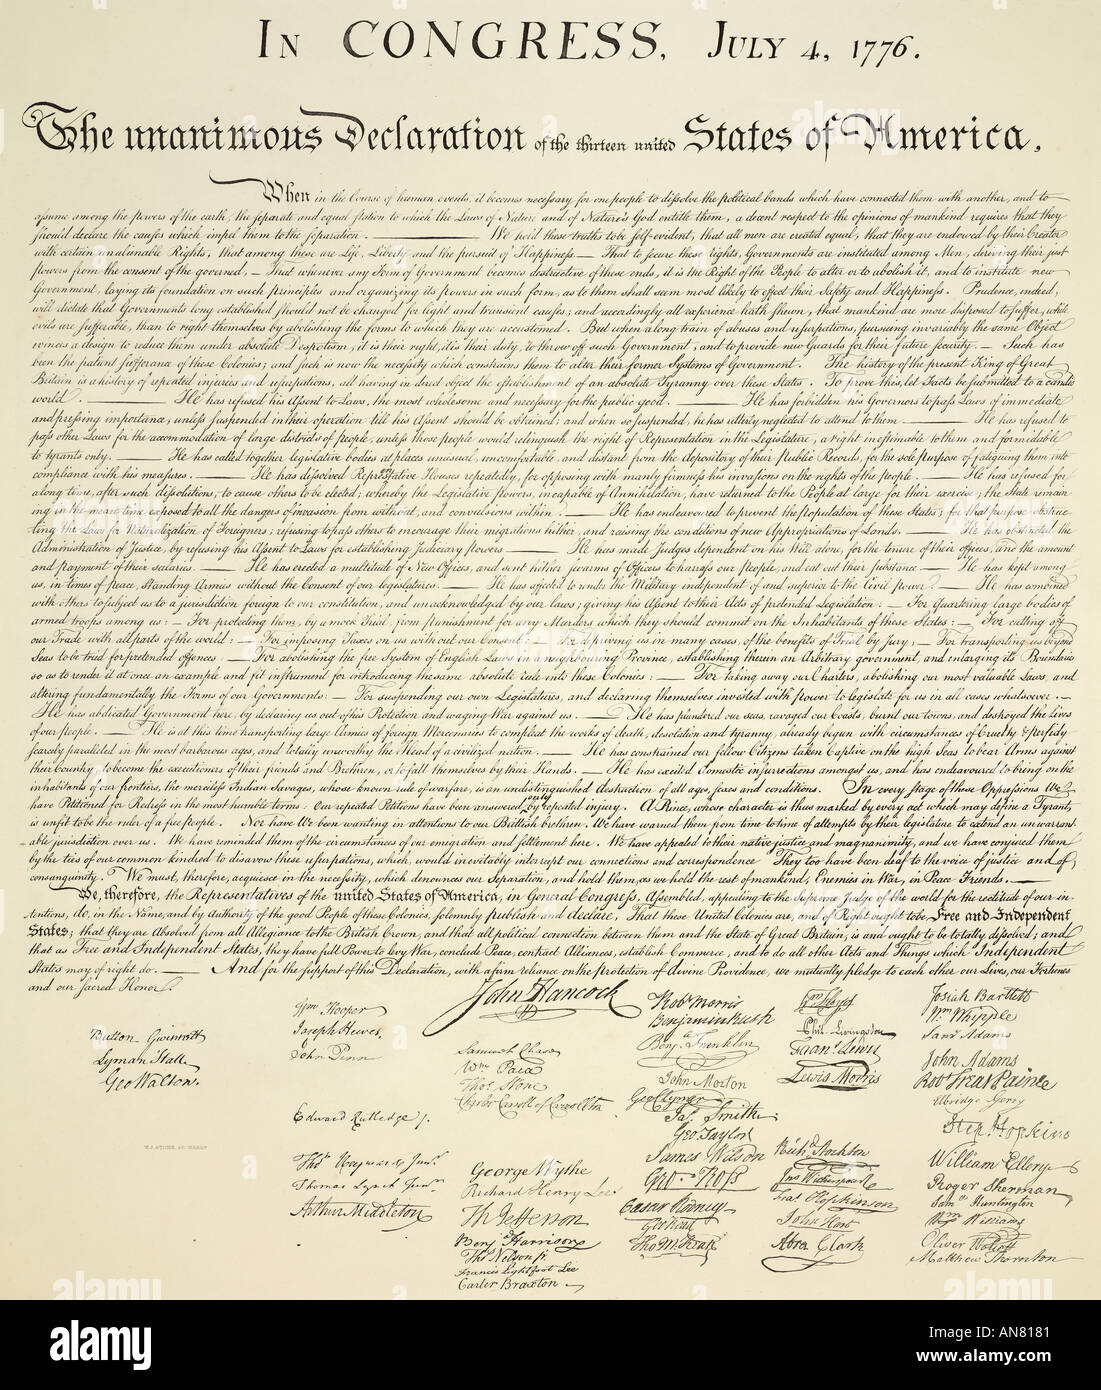 IN CONGRESS, JULY 4, 1776.
The unanimous Declaration of the thirteen united States of America,
When in the Course of human events, it becomes necessary for one people to dissolve the political bands which have connected them with another, and to
assume among the powers of the earth, the separate and equal station to which the Laws of Nature and of Nature's God entitle them, a decent respect to the opinions of mankind requires that they
should declare the causes which impel them to the separation. ——— We hold these truths to be self-evident, that all men are created equal, that they are endowed by their Creator
with certain unalienable Rights, that among these are Life, Liberty and the pursuit of Happiness.— That to secure these rights, Governments are instituted among Men, deriving their just
powers from the consent of the governed, — That whenever any Form of Government becomes destructive of these ends, it is the Right of the People to alter or to abolish it, and to institute new
Government, laying its foundation on such principles and organizing its powers in such form, as to them shall seem most likely to effect their Safety and Happiness. Prudence, indeed,
will dictate that Governments long established should not be changed for light and transient causes; and accordingly all experience hath shewn, that mankind are more disposed to suffer, while
evils are sufferable, than to right themselves by abolishing the forms to which they are accustomed. But when a long train of abuses and usurpations, pursuing invariably the same Object
evinces a design to reduce them under absolute Despotism, it is their right, it is their duty, to throw off such Government, and to provide new Guards for their future security.— Such has
been the patient sufferance of these Colonies; and such is now the necessity which constrains them to alter their former Systems of Government. The history of the present King of Great
Britain is a history of repeated injuries and usurpations, all having in direct object the establishment of an absolute Tyranny over these States. To prove this, let Facts be submitted to a candid
world. ——— He has refused his Assent to Laws, the most wholesome and necessary for the public good. ——— He has forbidden his Governors to pass Laws of immediate
and pressing importance, unless suspended in their operation till his Assent should be obtained; and when so suspended, he has utterly neglected to attend to them. ——— He has refused to
pass other Laws for the accommodation of large districts of people, unless those people would relinquish the right of Representation in the Legislature, a right inestimable to them and formidable
to tyrants only. ——— He has called together legislative bodies at places unusual, uncomfortable, and distant from the depository of their Public Records, for the sole purpose of fatiguing them into
compliance with his measures. ——— He has dissolved Representative Houses repeatedly, for opposing with manly firmness his invasions on the rights of the people. ——— He has refused for
a long time, after such dissolutions, to cause others to be elected; whereby the Legislative powers, incapable of Annihilation, have returned to the People at large for their exercise; the State remain-
ing in the mean time exposed to all the dangers of invasion from without, and convulsions within. ——— He has endeavoured to prevent the population of these States; for that purpose obstruc-
ting the Laws for Naturalization of Foreigners; refusing to pass others to encourage their migrations hither, and raising the conditions of new Appropriations of Lands. ——— He has obstructed the
Administration of Justice, by refusing his Assent to Laws for establishing Judiciary powers. ——— He has made Judges dependent on his Will alone, for the tenure of their offices, and the amount
and payment of their salaries. ——— He has erected a multitude of New Offices, and sent hither swarms of Officers to harrass our people, and eat out their substance.— He has kept among
us, in times of peace, Standing Armies without the Consent of our legislatures. ——— He has affected to render the Military independent of and superior to the Civil power. ——— He has combined
with others to subject us to a jurisdiction foreign to our constitution, and unacknowledged by our laws; giving his Assent to their Acts of pretended Legislation: — For Quartering large bodies of
armed troops among us: — For protecting them, by a mock Trial from punishment for any Murders which they should commit on the Inhabitants of these States: — For cutting off
our Trade with all parts of the world: — For imposing Taxes on us without our Consent: — For depriving us in many cases, of the benefits of Trial by Jury: — For transporting us beyond
Seas to be tried for pretended offences — For abolishing the free System of English Laws in a neighbouring Province, establishing therein an Arbitrary government, and enlarging its Boundaries
so as to render it at once an example and fit instrument for introducing the same absolute rule into these Colonies: — For taking away our Charters, abolishing our most valuable Laws, and
altering fundamentally the Forms of our Governments: — For suspending our own Legislatures, and declaring themselves invested with power to legislate for us in all cases whatsoever. —
He has abdicated Government here, by declaring us out of his Protection and waging War against us. — He has plundered our seas, ravaged our Coasts, burnt our towns, and destroyed the lives
of our people. — He is at this time transporting large Armies of foreign Mercenaries to compleat the works of death, desolation and tyranny, already begun with circumstances of Cruelty & perfidy
scarcely paralleled in the most barbarous ages, and totally unworthy the Head of a civilized nation. — He has constrained our fellow Citizens taken Captive on the high Seas to bear Arms against
their Country, to become the executioners of their friends and Brethren, or to fall themselves by their Hands. — He has excited domestic insurrections amongst us, and has endeavoured to bring on the
inhabitants of our frontiers, the merciless Indian Savages, whose known rule of warfare, is an undistinguished destruction of all ages, sexes and conditions. In every stage of these Oppressions We
have Petitioned for Redress in the most humble terms: Our repeated Petitions have been answered only by repeated injury. A Prince, whose character is thus marked by every act which may define a Tyrant,
is unfit to be the ruler of a free people. Nor have We been wanting in attentions to our Brittish brethren. We have warned them from time to time of attempts by their legislature to extend an unwarrant-
able jurisdiction over us. We have reminded them of the circumstances of our emigration and settlement here. We have appealed to their native justice and magnanimity, and we have conjured them
by the ties of our common kindred to disavow these usurpations, which, would inevitably interrupt our connections and correspondence. They too have been deaf to the voice of justice and of
consanguinity. We must, therefore, acquiesce in the necessity, which denounces our Separation, and hold them, as we hold the rest of mankind, Enemies in War, in Peace Friends. —
We, therefore, the Representatives of the united States of America, in General Congress, Assembled, appealing to the Supreme Judge of the world for the rectitude of our in-
tentions, do, in the Name, and by Authority of the good People of these Colonies, solemnly publish and declare, That these United Colonies are, and of Right ought to be Free and Independent
States; that they are Absolved from all Allegiance to the British Crown, and that all political connection between them and the State of Great Britain, is and ought to be totally dissolved; and
that as Free and Independent States, they have full Power to levy War, conclude Peace, contract Alliances, establish Commerce, and to do all other Acts and Things which Independent
States may of right do. — And for the support of this Declaration, with a firm reliance on the protection of divine Providence, we mutually pledge to each other our Lives, our Fortunes
and our sacred Honor.
Button Gwinnett
Lyman Hall
Geo Walton.
Wm Hooper
Joseph Hewes,
John Penn
Edward Rutledge /.
Thos Heyward Junr.
Thomas Lynch Junr.
Arthur Middleton
John Hancock
Samuel Chase
Wm Paca
Thos Stone
Charles Carroll of Carrollton
George Wythe
Richard Henry Lee
Th Jefferson
Benj Harrison
Thos Nelson jr.
Francis Lightfoot Lee
Carter Braxton
Robt Morris
Benjamin Rush
Benj. Franklin
John Morton
Geo Clymer
Jas. Smith
Geo. Taylor
James Wilson
Geo. Ross
Caesar Rodney
Geo Read
Tho M:Kean
Wm Floyd
Phil. Livingston
Frans. Lewis
Lewis Morris
Richd. Stockton
Jno Witherspoon
Fras. Hopkinson
John Hart
Abra Clark
Josiah Bartlett
Wm Whipple
Saml Adams
John Adams
Robt Treat Paine
Elbridge Gerry
Step. Hopkins
William Ellery
Roger Sherman
Saml Huntington
Wm Williams
Oliver Wolcott
Matthew Thornton
W.J. STONE SC. WASHN.
alamy
www.alamy.com
Image ID: AN8181